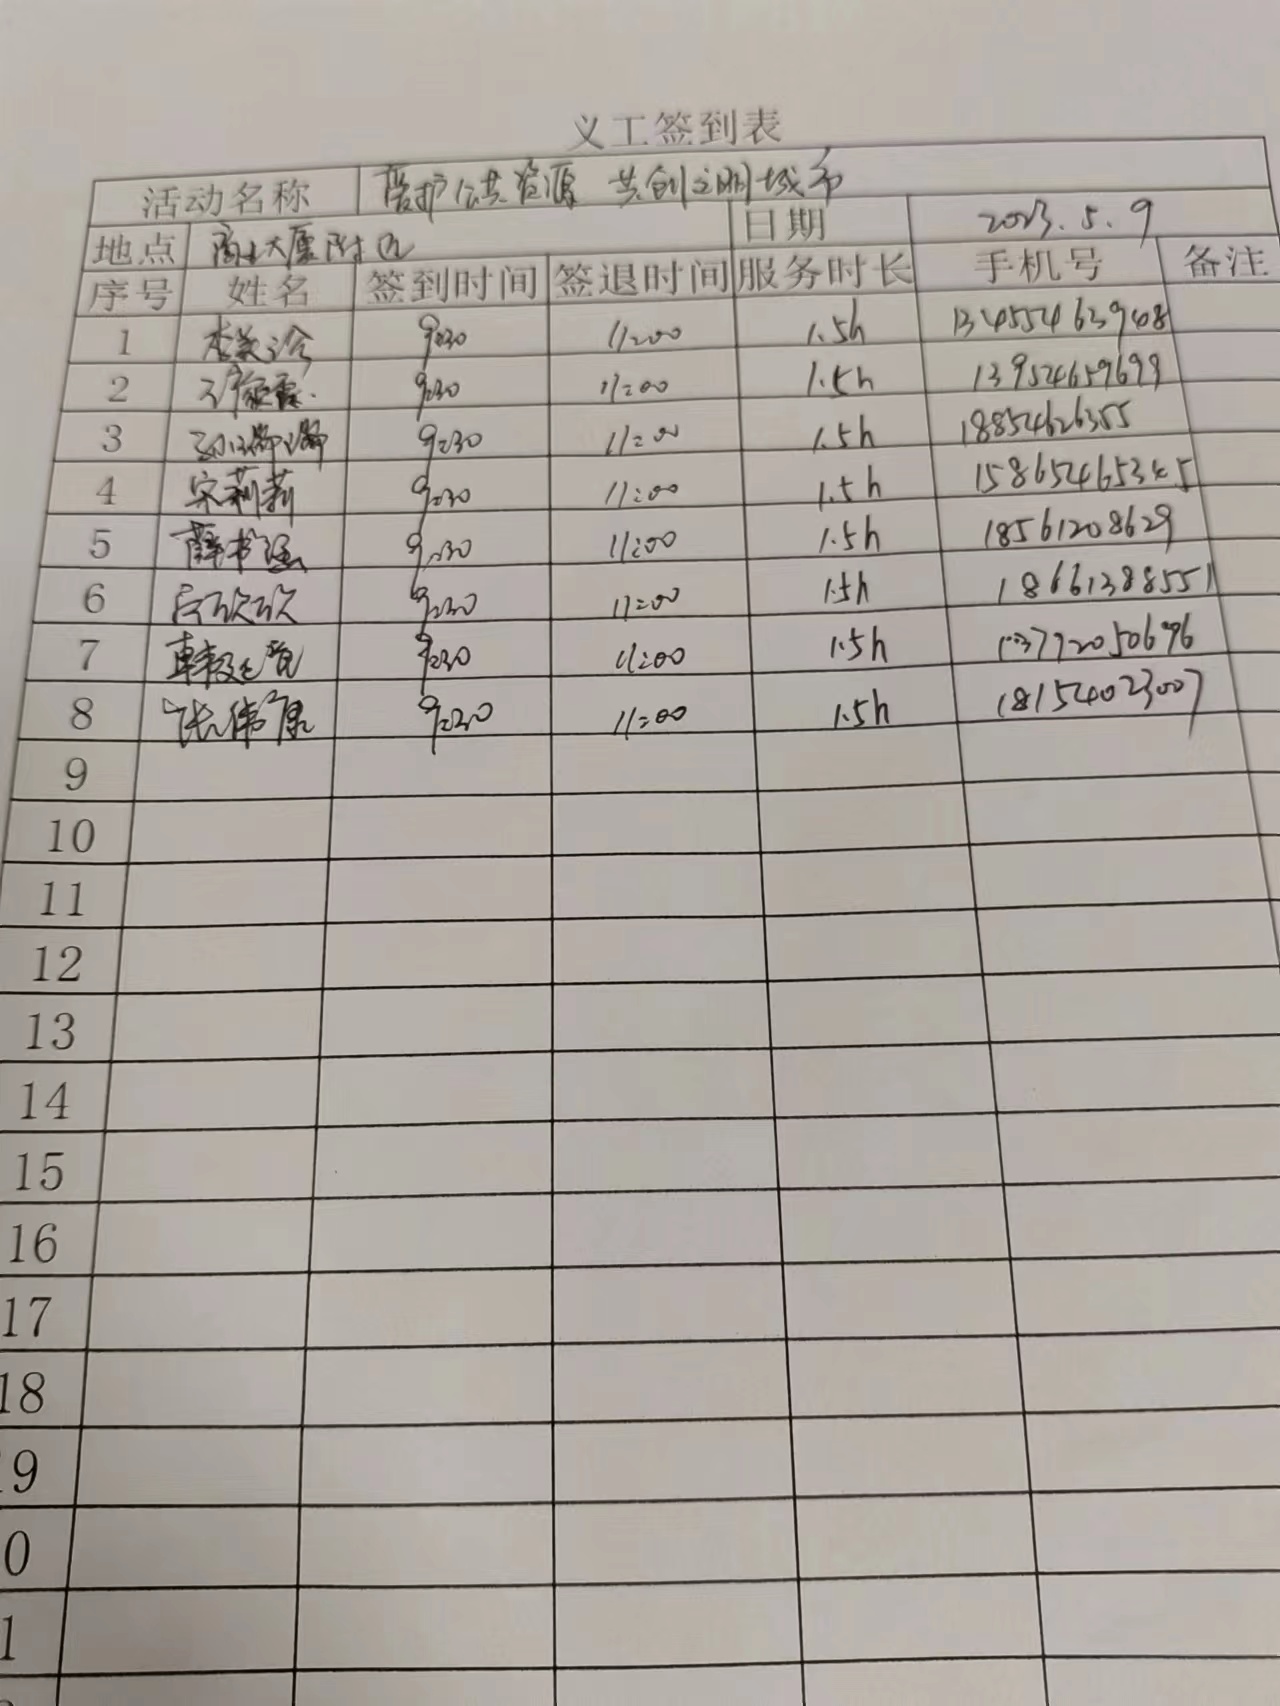 义工签到表
活动名称 爱护公共资源 共创文明城市
地点 大厦附近 日期 2023.5.9
序号 姓名 签到时间 签退时间 服务时长 手机号 备注
1 9:30 11:00 1.5h
2 9:30 11:00 1.5h 13954659699
3 孙璐璐 9:30 11:00 1.5h 18854626355
4 宋莉莉 9:30 11:00 1.5h 15865465345
5 薛书涵 9:30 11:00 1.5h 18561208629
6 9:30 11:00 1.5h 18661388551
7 9:30 11:00 1.5h
8 张伟康 9:30 11:00 1.5h 18154023007
9
10
11
12
13
14
15
16
17
18
19
0
1